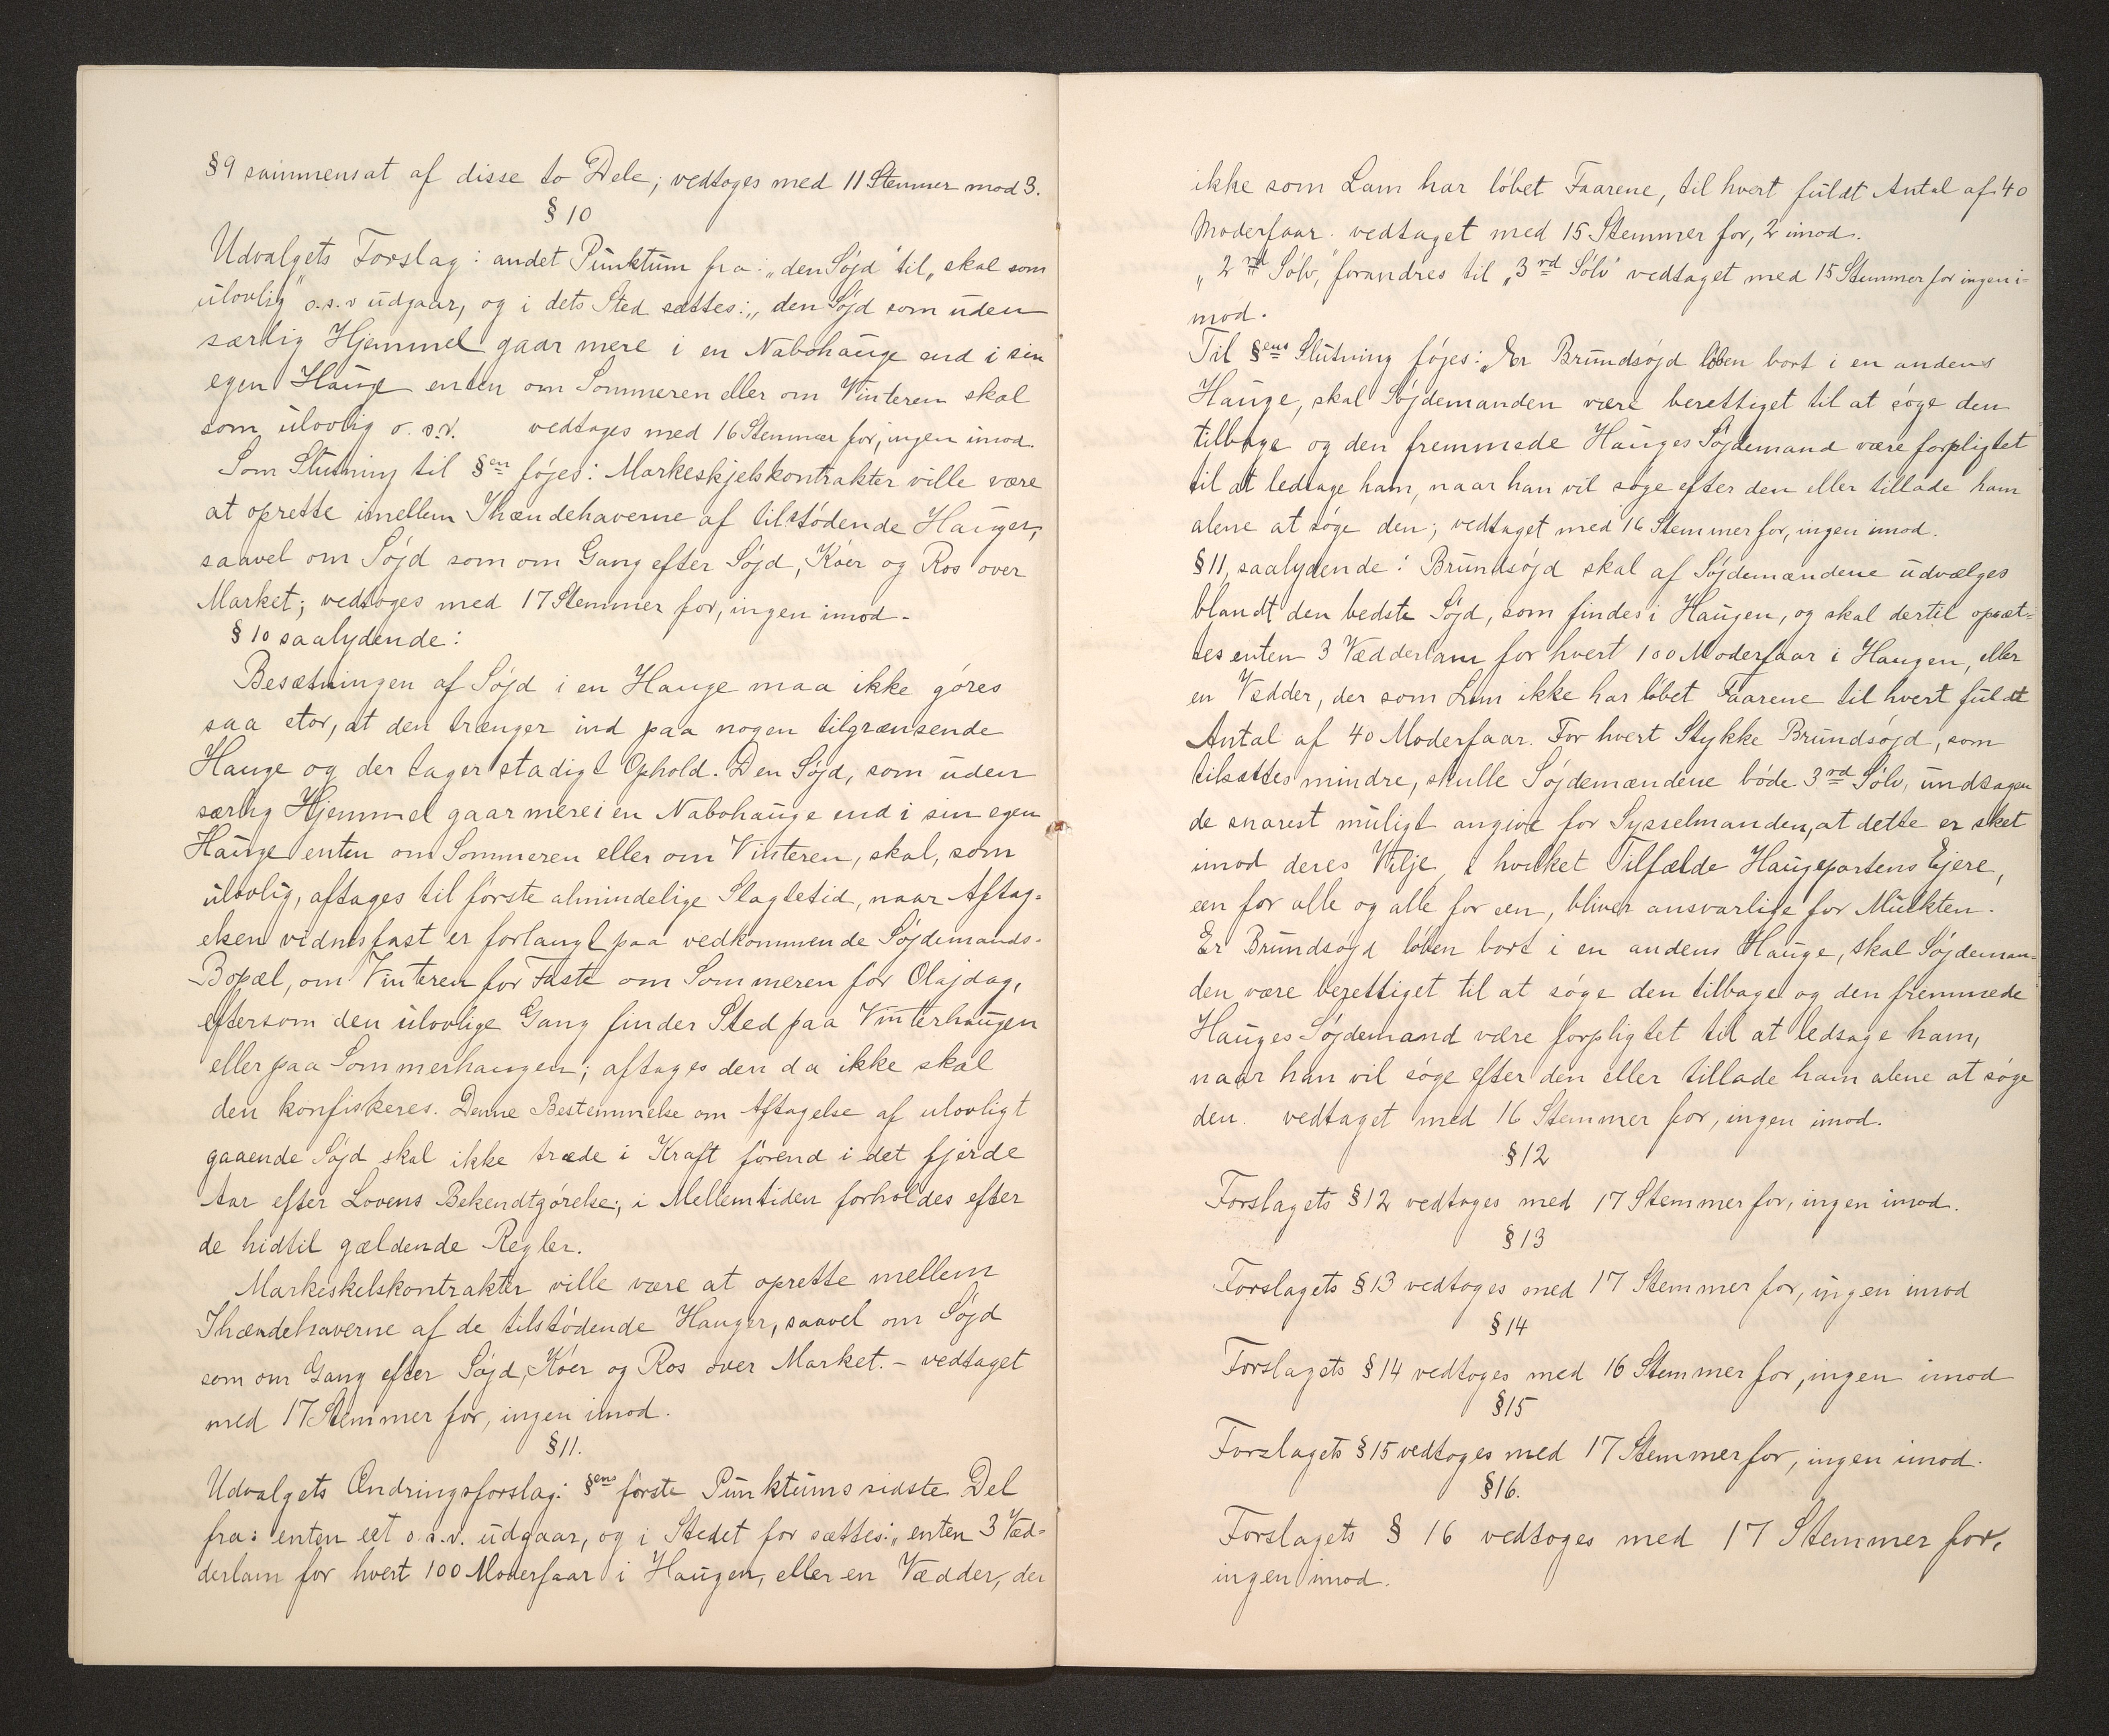 §9 sammensat af disse to Dele; vedtoges med 11 Stemmer mod 3.
§ 10
Udvalgets Forslag: andet Punktum fra: „den Söjd" til „skal som
ulovlig" o.s.v udgaar, og i dets Sted sættes: „den Söjd som uden
særlig Hjemmel gaar mere i en Nabohauge end i sin
egen Hauge enten om Sommeren eller om Vinteren skal
som ulovlig o.s.v. vedtoges med 16 Stemmer for, ingen imod.
Som Slutning til §en föjes: Markeskjelskontrakter ville være
at oprette imellem Ihændehaverne af tilstödende Hauger,
saavel om Söjd som om Gang efter Söjd, Köer og Ros over
Market; vedtoges med 17 Stemmer for, ingen imod.
§ 10 saalydende:
Besætningen af Söjd i en Hauge maa ikke göres
saa stor, at den trænger ind paa nogen tilgrænsende
Hauge og der tager stadigt Ophold. Den Söjd, som uden
særlig Hjemmel gaar mere i en Nabohauge end i sin egen
Hauge enten om Sommeren eller om Vinteren, skal, som
ulovlig, aftages til förste almindelige Slagtetid, naar Aftag-
elsen vidnesfast er forlangt paa vedkommende Söjdemands-
Bopæl, om Vinteren for Faste om Sommeren för Olajdag,
eftersom den ulovlige Gang finder Sted paa Vinterhaugen
eller paa Sommerhaugen; aftages den da ikke skal
den konfiskeres. Denne Bestemmelse om Aftagelse af ulovligt
gaaende Söjd skal ikke træde i Kraft förend i det fjerde
Aar efter Lovens Bekendtgörelse; i Mellemtiden forholdes efter
de hidtil gældende Regler.
Markeskelskontrakter ville være at oprette mellem
Ihændehaverne af de tilstödende Hauger, saavel om Söjd
som om Gang efter Söjd, Köer og Ros over Market. – vedtaget
med 17 Stemmer for, ingen imod.
§11.
Udvalgets Ændringsforslag: §ens förste Punktums sidste Del
fra: enten eet o.s.v. udgaar, og i Stedet for sættes: „enten 3 Væd-
derlam for hvert 100 Moderfaar i Haugen, eller en Vædder, der
ikke som Lam har löbet Faarene, til hvert fuldt Antal af 40
Moderfaar. vedtaget med 15 Stemmer for, 2 imod.
„2 rd Sölv," forandres til „3 rd Sölv" vedtaget med 15 Stemmer for ingen i-
mod.
Til §ens Slutning föjes: „Er Brundsöjd löben bort i en andens
Hauge, skal Söjdemanden være berettiget til at söge den
tilbage og den fremmede Hauges Söjdemand være forpligtet
til at ledsage ham, naar han vil söge efter den eller tillade ham
alene at söge den; vedtaget med 16 Stemmer for, ingen imod.
§11, saalydende: Brundsöjd skal af Söjdemændene udvælges
blandt den bedste Söjd, som findes i Haugen, og skal dertil opsæt-
tes enten 3 Vædderlam for hvert 100 Moderfaar i Haugen, eller
en Vædder, der som Lam ikke har löbet Faarene til hvert fuldt
Antal af 40 Moderfaar. For hvert Stykke Brundsöjd, som
tilsættes mindre, skulle Söjdemændene böde 3 rd Sölv, undtagen
de snarest muligt angive for Sysselmanden, at dette er sket
imod deres Vilje, i hvilket Tilfælde Haugepartens Ejere,
een for alle og alle for een, bliver ansvarlige for Mulkten.
Er Brundsöjd löben bort i en andens Hauge, skal Söjdeman-
den være berettiget til at söge den tilbage og den fremmede
Hauges Söjdemand være forpligtet til at ledsage ham,
naar han vil söge efter den eller tillade ham alene at söge
den. vedtaget med 16 Stemmer for, ingen imod.
§12
Forslagets §12 vedtoges med 17 Stemmer for, ingen imod.
§13
Forslagets §13 vedtoges med 17 Stemmer for, ingen imod
§14
Forslagets §14 vedtoges med 16 Stemmer for, ingen imod
§15
Forslagets §15 vedtoges med 17 Stemmer for, ingen imod.
§16.
Forslagets § 16 vedtoges med 17 Stemmer for,
ingen imod.